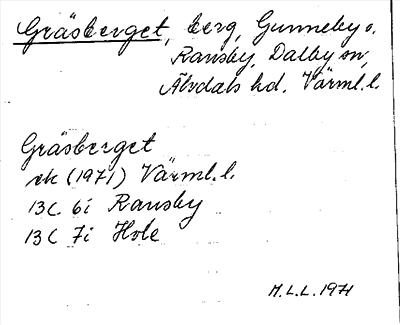 Gräsberget, berg, Gunneby o.
Ransby, Dalby sn,
Älvdals hd. Värml. l.
Gräsberget
ek (1971) Värml. l.
13C 6i Ransby
13C 7i Hole
M.L.L. 1971